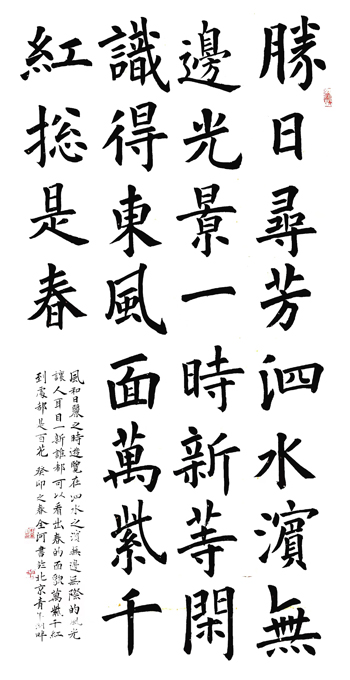 勝日尋芳泗水濵無
邊光景一時新等閑
識得東風面萬紫千
紅捴是春
風和日麗之時遊覽在泗水之濱無邊無際的風光
讓人耳目一新誰都可以看出春的面貌萬紫千紅
到處都是百花癸卯之春全河書於北京青年湖畔